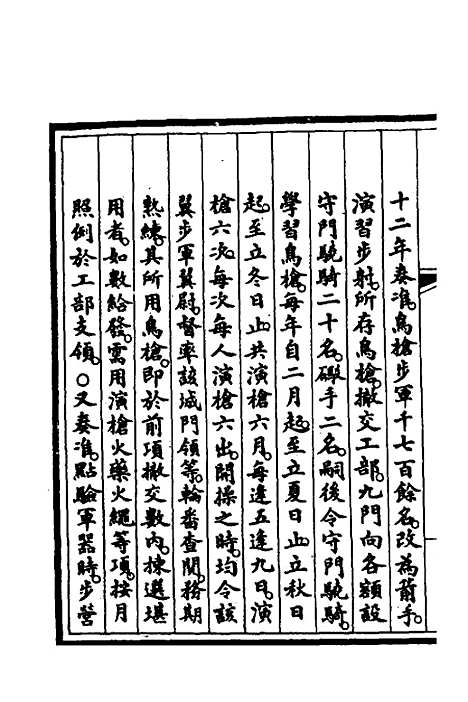 十二年奏准。鳥槍步軍千七百餘名。改為箭手。
演習步射。所存鳥槍。撤交工部。九門向各額設
守門驍騎二十名。礮手二名。嗣後令守門驍騎。
學習鳥槍。每年自二月起。至立夏日止。立秋日
起。至立冬日止。共演槍六月。每逢五逢九日。演
槍六次。每次每人演槍六出。開操之時。均令該
翼步軍翼尉。督率該城門領等。輪番查閱。務期
熟練。其所用鳥槍。即於前項撤交數內。揀選堪
用者。如數給發。需用演槍火藥火繩等項。按月
照例於工部支領。○又奏准。點驗軍器時。步營